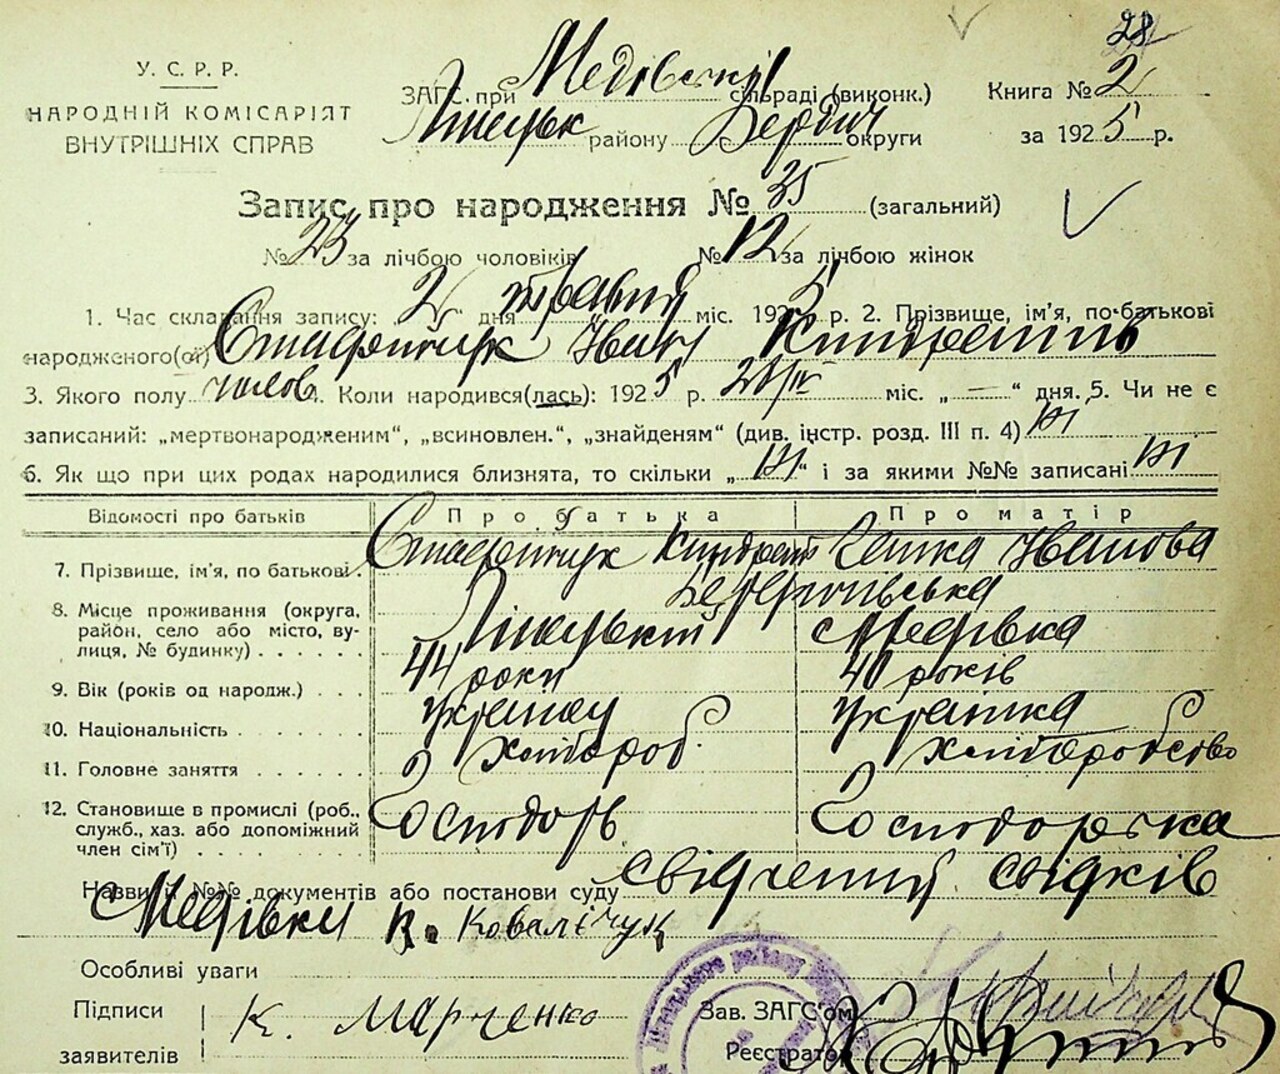 28
У. С. Р. Р.
НАРОДНІЙ КОМІСАРІЯТ
ВНУТРІШНІХ СПРАВ
ЗАГС при Медівській сільраді (виконк.) Книга № 2
району Бердич округи за 1925 р.
Запис про народження № 35 (загальний)
№ 23 за лічбою чоловіків № 12 за лічбою жінок
1. Час складання запису: „2“ дня травня міс. 1925 р. 2. Прізвище, ім'я, по-батькові
народженого(ої) Стафійчук Іван
3. Якого полу чолов 4. Коли народився(лась): 1925 р. міс. „—“ дня. 5. Чи не є
записаний: „мертвонародженим“, „всиновлен.“, „знайденям“ (див. інстр. розд. III п. 4) ні
6. Як що при цих родах народилися близнята, то скільки „ні“ і за якими №№ записані ні
Відомості про батьків Про батька Про матір
7. Прізвище, ім'я, по батькові. Стафійчук Кіндрат Ганка Іванова
8. Місце проживання (округа, район, село або місто, вулиця, № будинку) Бердичівська
Медівка
9. Вік (років од народж.) 44 роки 40 років
10. Національність українец українка
11. Головне заняття хлібороб. хліборобство
12. Становище в промислі (роб., служб., хаз. або допоміжний член сім'ї) Господарь Господарька
Назви й №№ документів або постанови суду свідчення свідків
Медівки К. Ковалічук
Особливі уваги
Підписи заявителів К. Марченко
Зав. ЗАГС'ом
Реєстратор